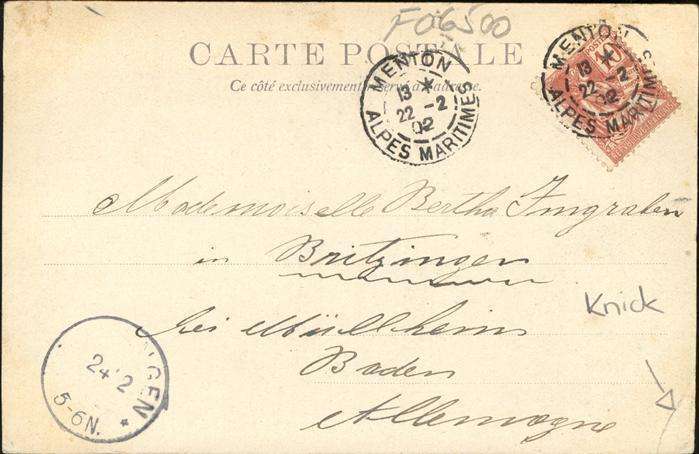 F06500
CARTE POSTALE
Ce côté exclusivement réservé à l'adresse.
MENTON
13
22 -2
02
ALPES MARITIMES
MENTON
13
22 -2
02
ALPES MARITIMES
POSTES
Mademoiselle Bertha Imgraben
in Britzingen
bei Müllheim
Baden
Allemagne
Knick
GEN
24 2
5-6N.